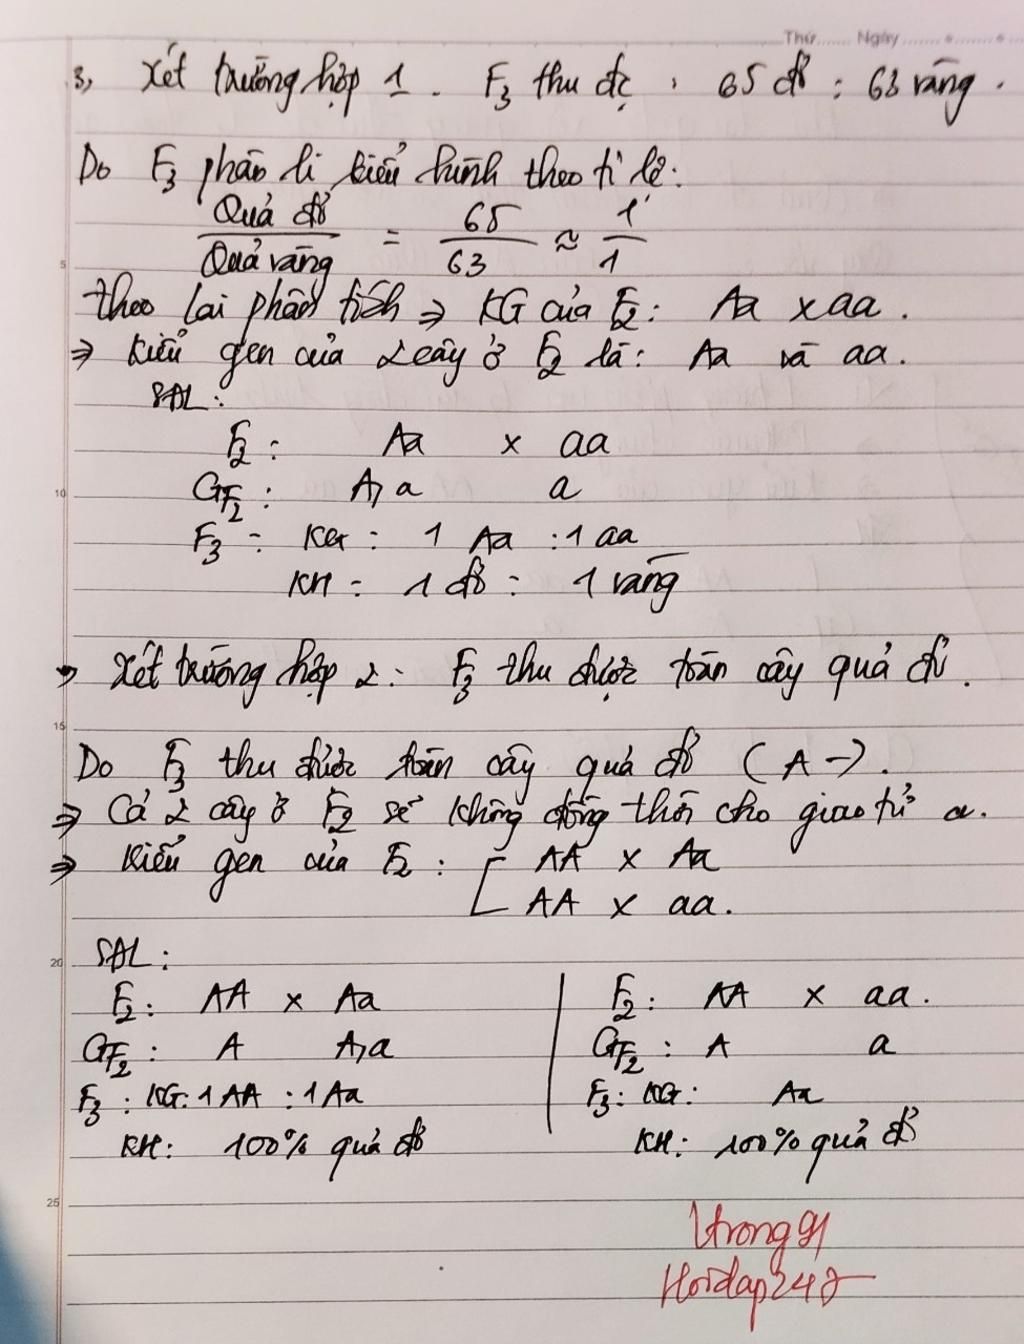 Thứ...... Ngày ......
3, Xét trường hợp 1. F3 thu đc : 65 đỏ : 63 vàng.
Do F3 phân li kiểu hình theo tỉ lệ:
Quả đỏ / Quả vàng = 65 / 63 ≈ 1 / 1
5
theo lai phân tích ⇒ KG của F2: Aa x aa.
⇒ Kiểu gen của 2 cây ở F2 là: Aa và aa.
SĐL:
F2: Aa x aa
10
GF2: A, a a
F3: KG: 1 Aa : 1 aa
KH: 1 đỏ : 1 vàng
Xét trường hợp 2: F3 thu được toàn cây quả đỏ.
15
Do F3 thu được toàn cây quả đỏ (A-).
⇒ Cả 2 cây ở F2 sẽ không đồng thời cho giao tử a.
⇒ Kiểu gen của F2: [ AA x Aa
AA x aa.
20
SĐL:
F2: AA x Aa
GF2: A A, a
F3: KG: 1 AA : 1 Aa
KH: 100% quả đỏ
F2: AA x aa.
GF2: A a
F3: KG: Aa
KH: 100% quả đỏ
25
Hoidap247